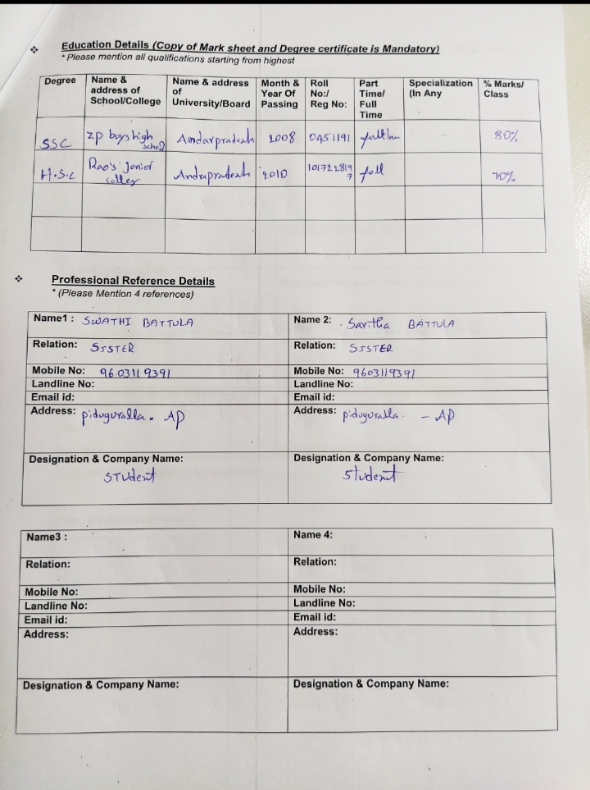 Education Details (Copy of Mark sheet and Degree certificate is Mandatory)
* Please mention all qualifications starting from highest
Degree | Name & address of School/College | Name & address of University/Board | Month & Year Of Passing | Roll No:/ Reg No: | Part Time/ Full Time | Specialization (In Any | % Marks/ Class
SSC | zp boys high school | Andarpradesh | 2008 | 0451191 | full | 80%
H.S.C | Rao's Junior | Andrapradesh | 2010 | full | 70%
Professional Reference Details
* (Please Mention 4 references)
Name1 : SWATHI BATTULA
Name 2: BATTULA
Relation: SISTER
Relation: SISTER
Mobile No: 9603119391
Mobile No: 9603119391
Landline No:
Landline No:
Email id:
Email id:
Address: piduguralla. AP
Address: piduguralla. - AP
Designation & Company Name:
Designation & Company Name:
STUdent
Student
Name3 :
Name 4:
Relation:
Relation:
Mobile No:
Mobile No:
Landline No:
Landline No:
Email id:
Email id:
Address:
Address:
Designation & Company Name:
Designation & Company Name: